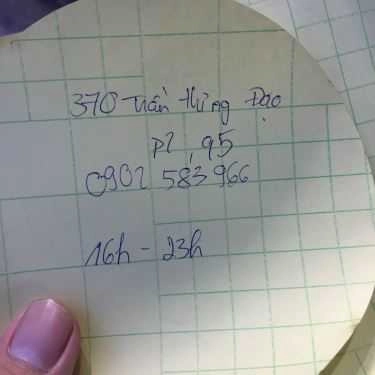 370 Trần Hưng Đạo
P2, Q5
0902 583 966
16h - 23h